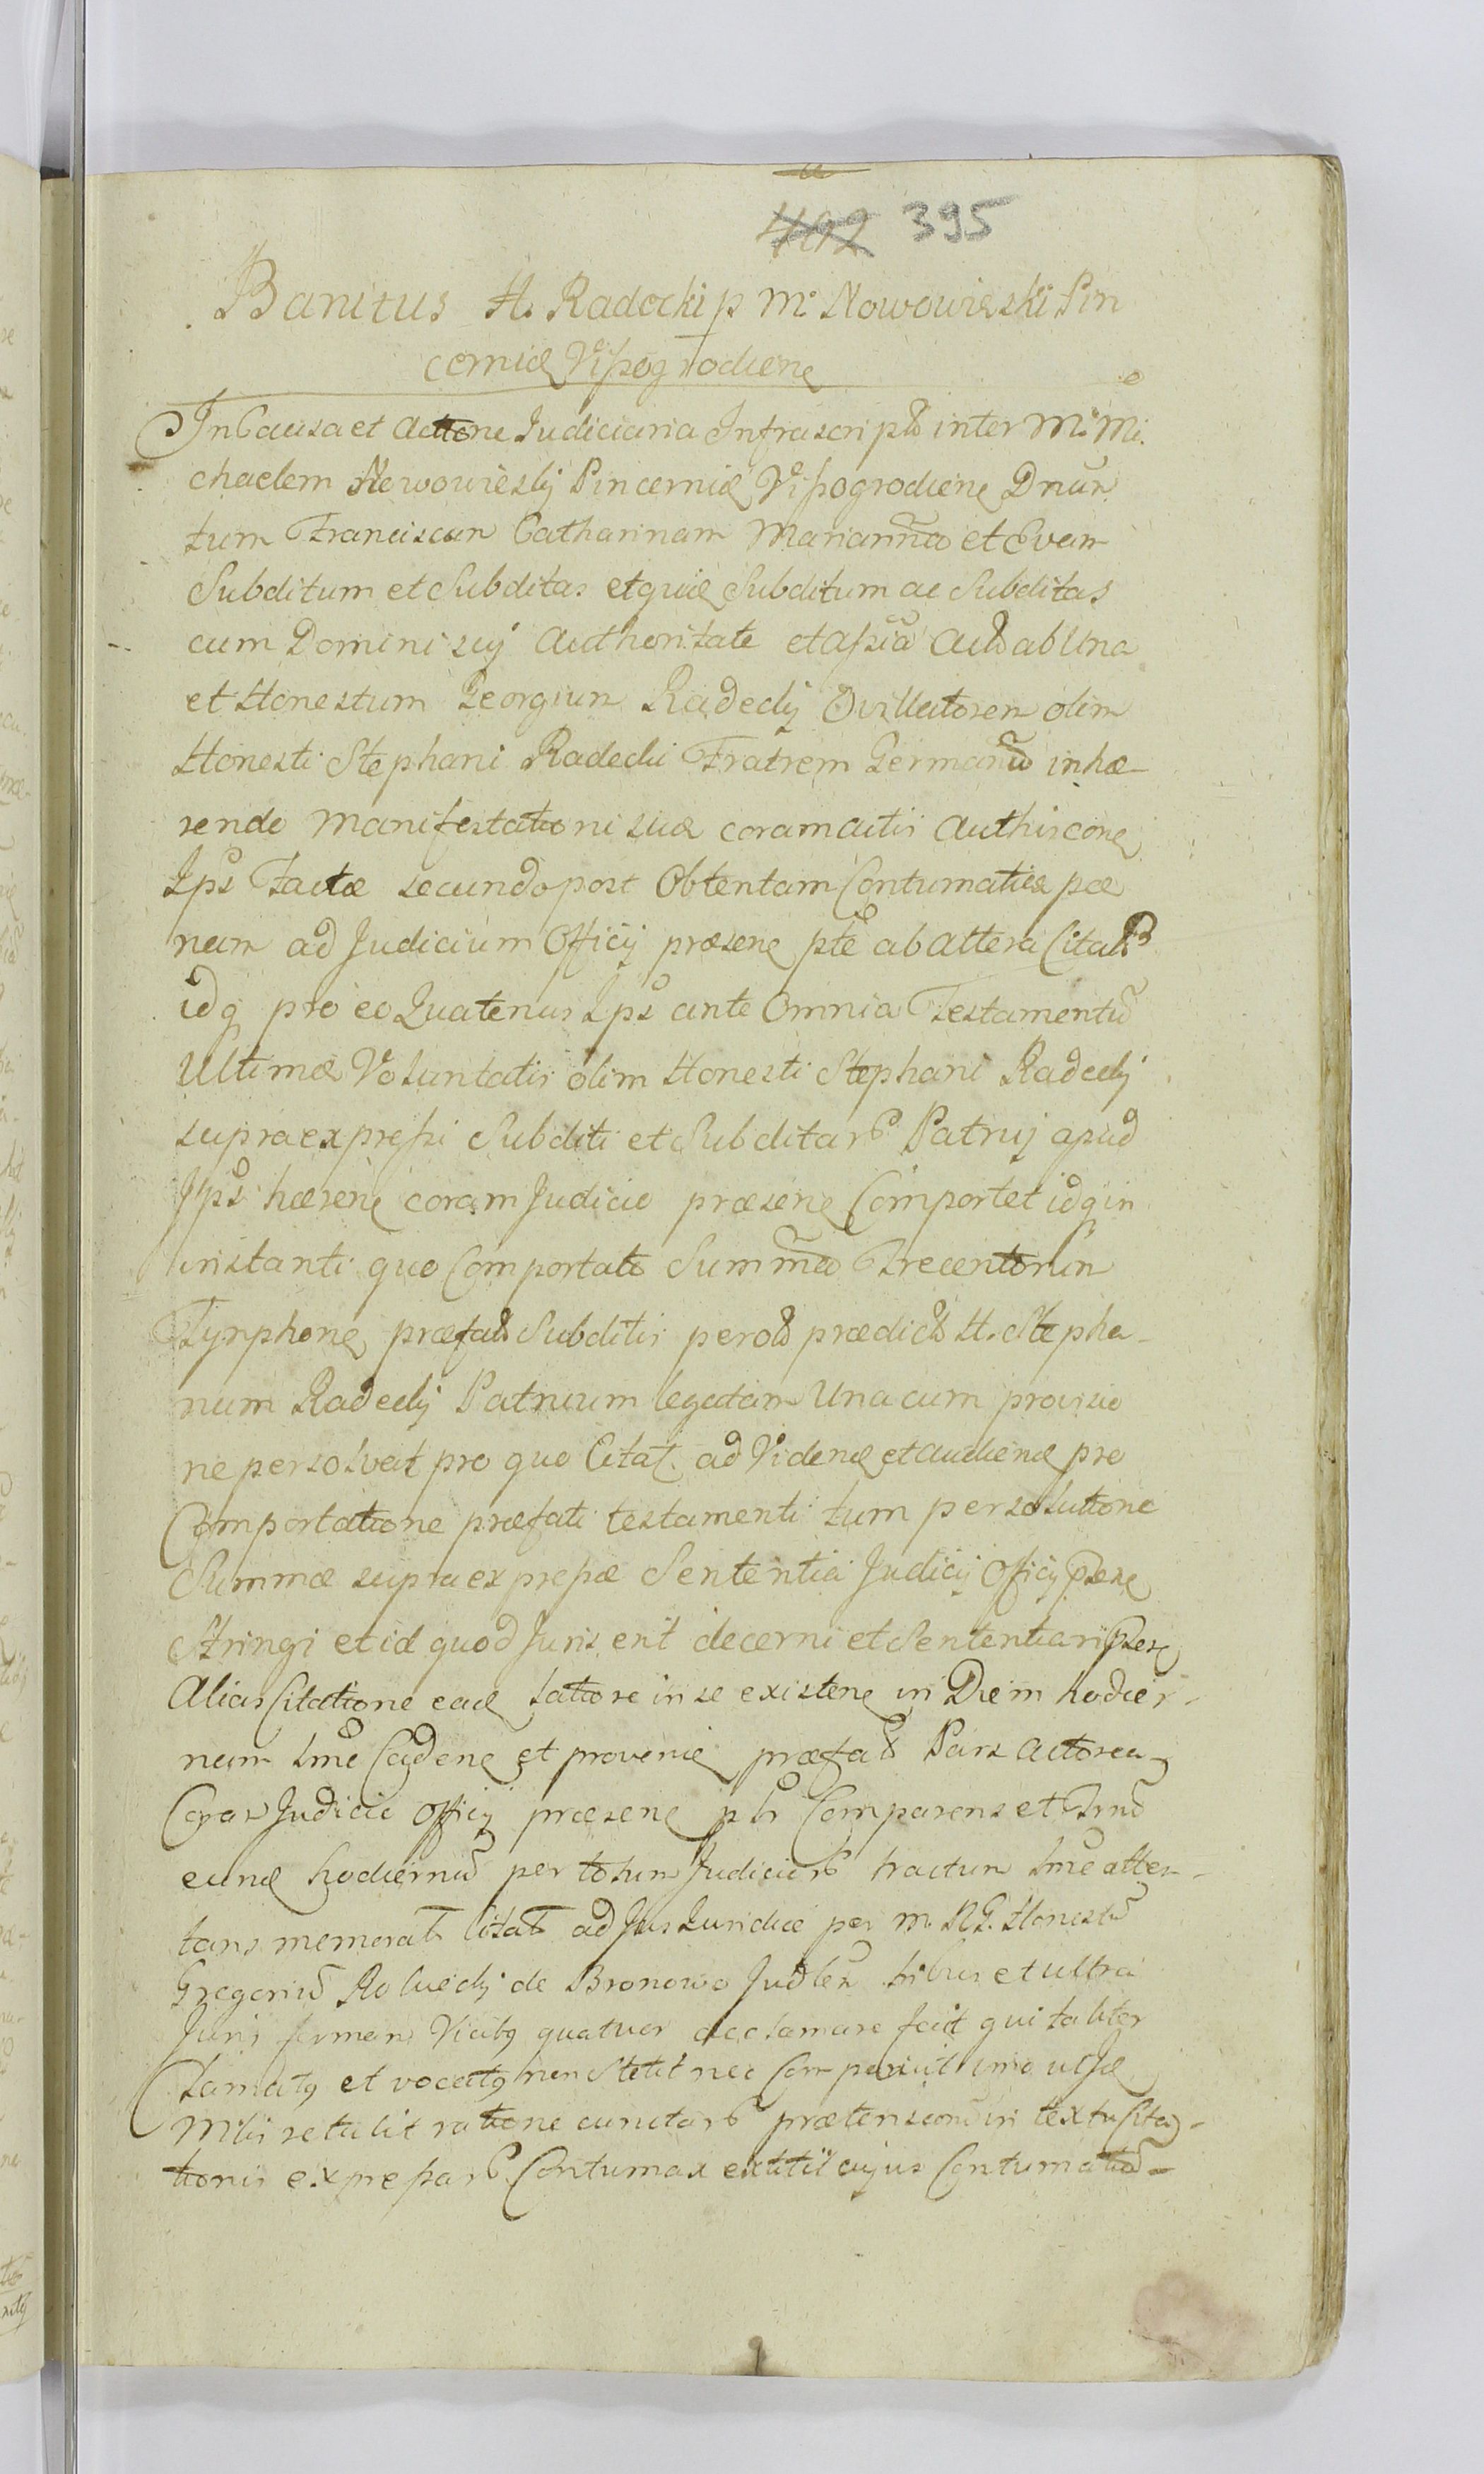 402 395
Banitus H. Radocki p M. Nowowieski Pin
cernæ Wiszogrodiene
In Causa et Actione Judiciaria Infrascripta inter M. Mi
chaelem Nowowieskij Pincernæ Wiszogrodiene Dnum
tum Franciscum Catharinam Mariannã et Evam
Subditum et Subditas et quæ Subditum ac Subditas
cum Domini sui Authoritate et Assia ab Una
et Honestum Georgium Radeckij olim
Honesti Stephani Radecki Fratrem Germanũ inhæ-
rendo Manifestationi suæ coram actis Authiscone
Ips Factæ secundo post Obtentam Contumatiæ pæ
nam ad Judicium Officij præsene pte ab altera Citat
idq pro eo Quatenus Ips ante Omnia Testamentũ
Ultimæ Voluntatis olim Honesti Stephani Radeckij
supra expressi Subditi et Subditar Patruj apud
Ips hærene coram Judicio præsene Comportet idq in
instanti quo Comportato Summã Trecentorum
Tynphone præfat Subditis per prædict H. Stepha-
num Radeckij Patruum legatam Una cum provisio
ne persolvat pro quo Citat. ad Vidend et audiend pro
Comportatione præfati testamenti tum persolutione
Summæ supra expressæ Sententia Judicij Officij præse
Stringi et id quod Juris erit decerni et Sententiari
Alias Citatione ead latiore in se existene in Diem hodier-
nam Cadene et provenie præfat Pars Actorea
Coram Judicio Officij præsene Comparens et
eund hodiernũ per totum Judicior tractum atten-
tans memorat Citat ad Jus Juridice per M. RG. Honestũ
Gregoriũ de Bronowo tribus et ultra
Juris Vicibq quatuor acclamare fecit qui taliter
Clamatq et vocatq non Stetit nec Comparuit imo
retulit ratione cunctar prætension in textu Cita-
tionis expressar Contumax extitit cujus Contumatiã-